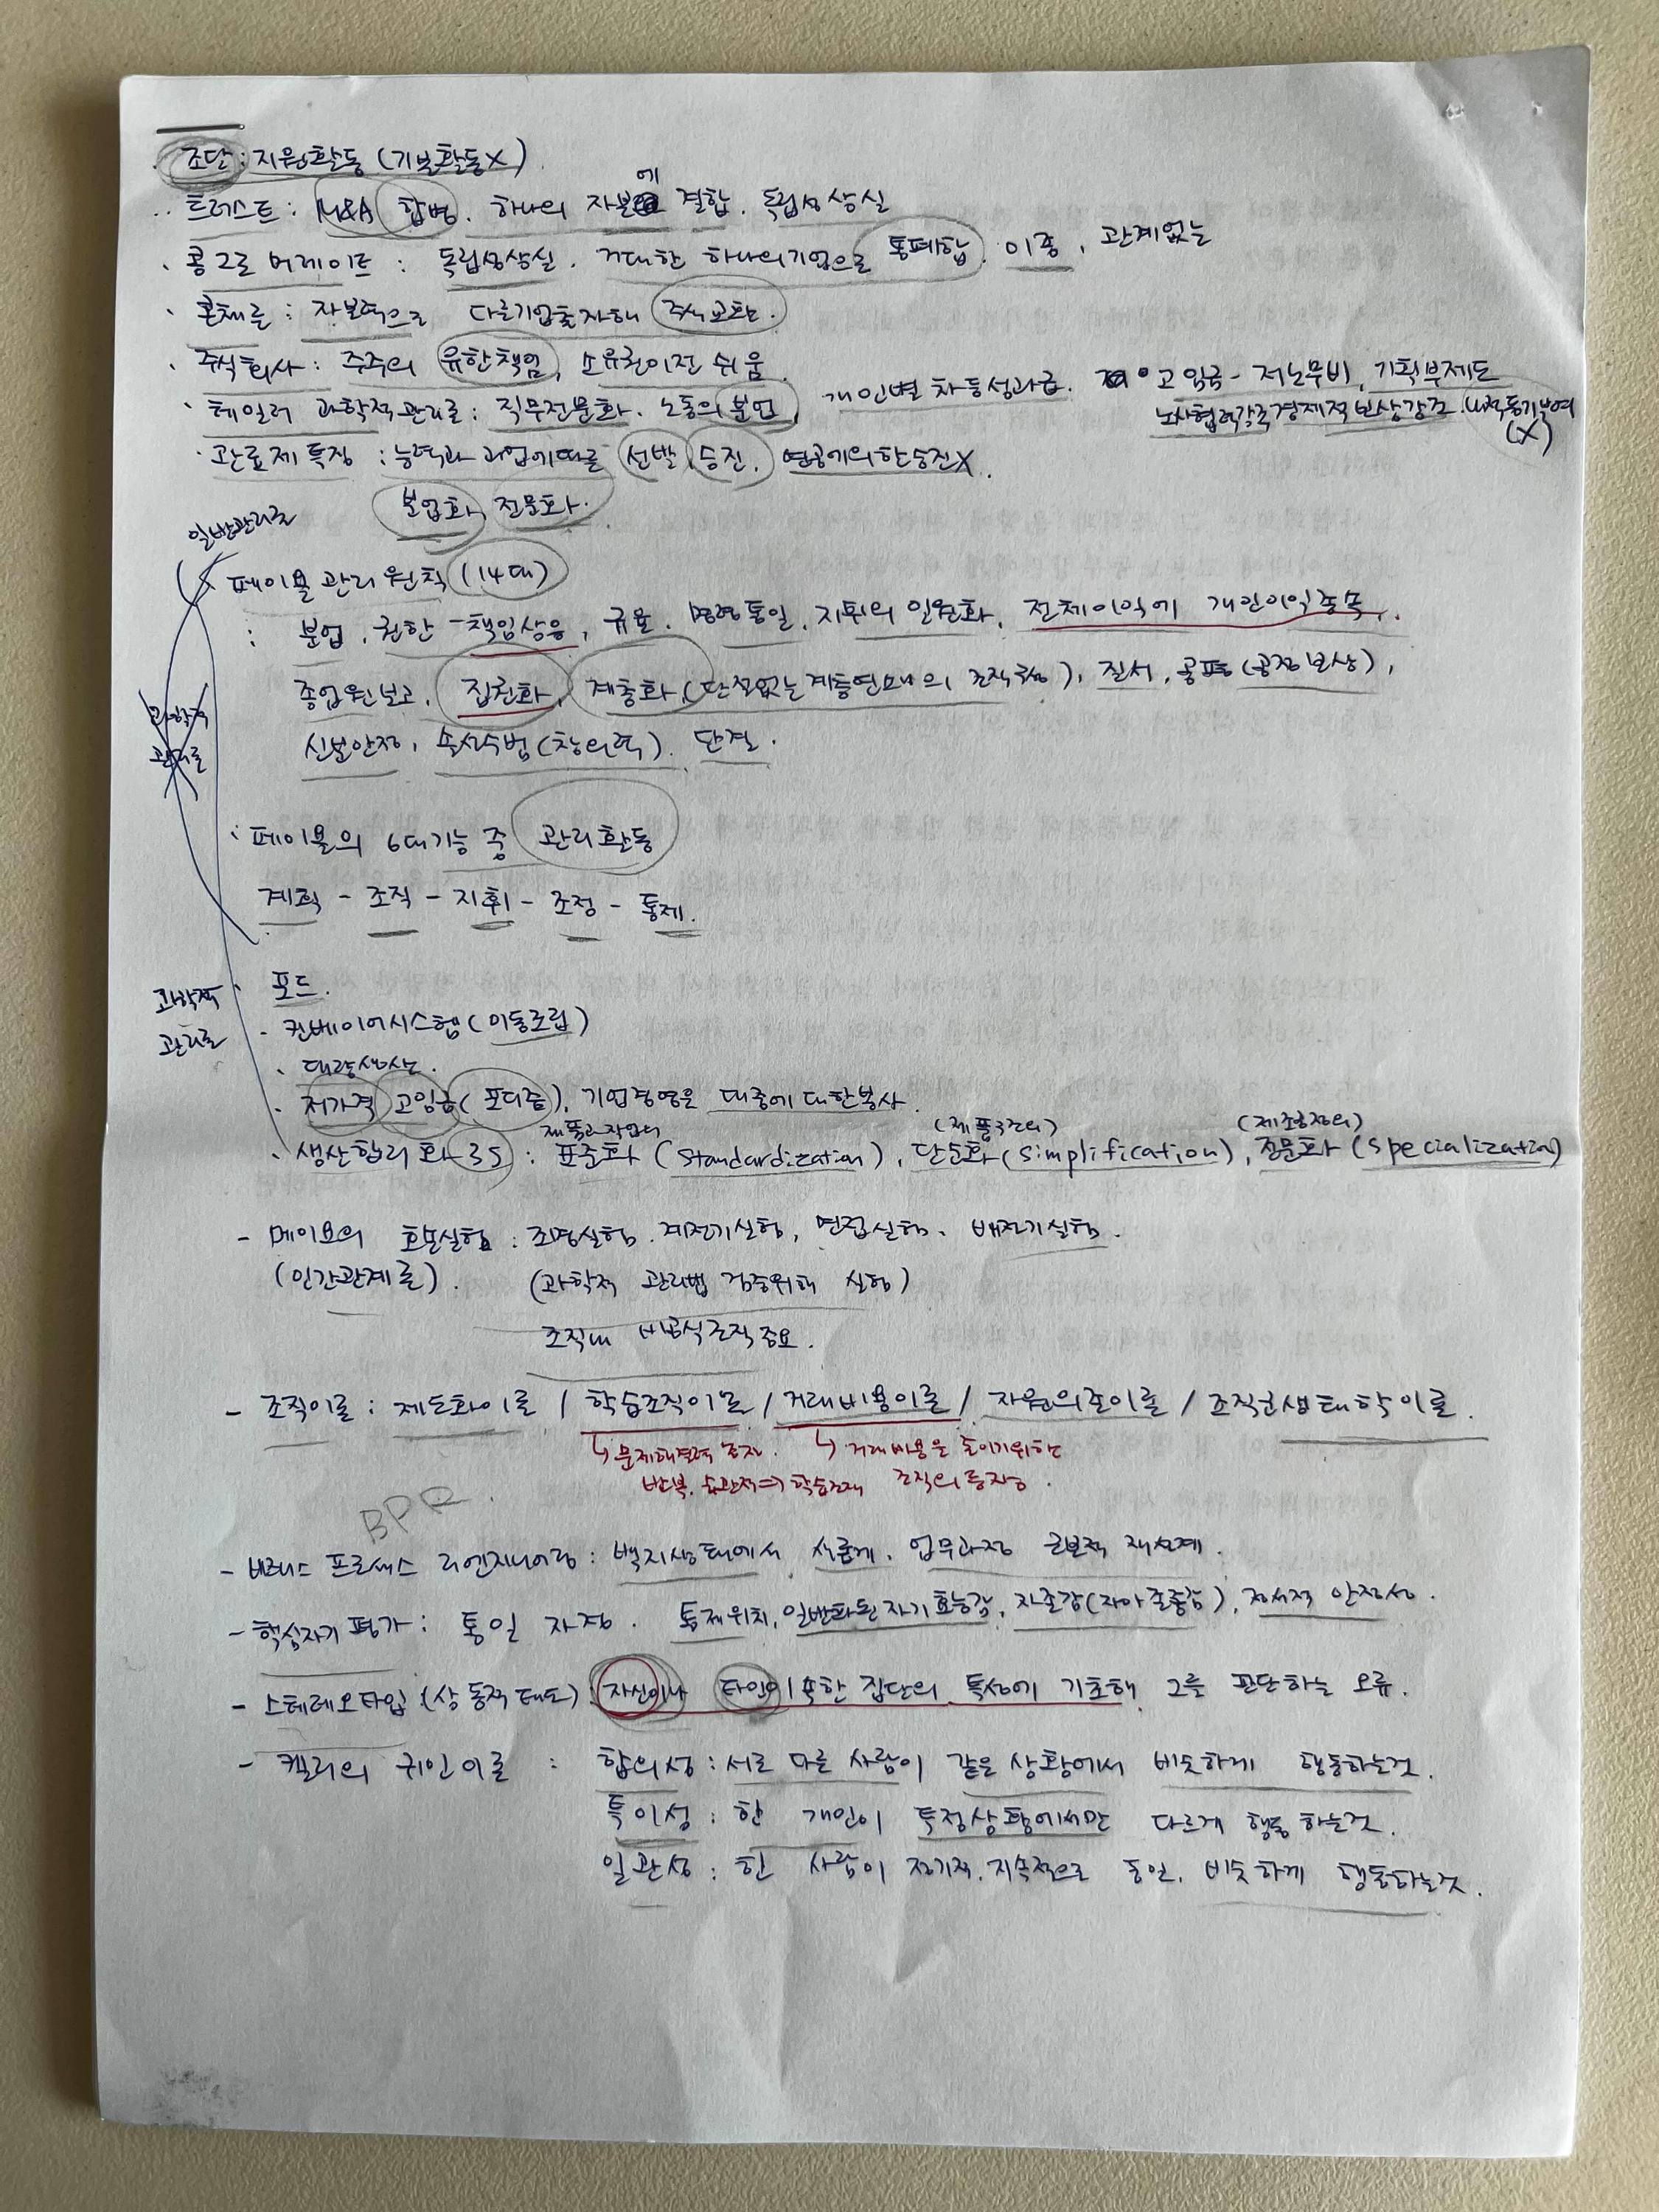 · 조달 : 지원활동 (기본활동X)
· 트러스트 : M&A 합병. 하나의 자본에 결합. 독립성상실
· 콩그로머레이트 : 독립성상실. 거대한 하나의기업으로 통폐합. 이종, 관계없는
· 콘체른 : 자본적으로 다른기업출자해 주식교환.
· 주식회사 : 주주의 유한책임, 소유권이전 쉬움.
· 테일러 과학적관리론 : 직무전문화. 노동의 분업, 개인별 차등성과급. 고임금 - 저노무비, 기획부제도
노사협력강조 경제적보상강조. 내적동기부여 (X)
· 관료제 특징 : 능력과 과업에따른 선발, 승진. 연공에의한승진X.
분업화, 전문화.
일반관리론
페이욜 관리 원칙 (14대)
: 분업, 권한-책임상응, 규율. 명령통일, 지휘의 일원화, 전체이익에 개인이익종속,
종업원보고, 집권화, 계층화 (단절없는계층연쇄의 조직구성), 질서, 공평(공정보상),
신분안정, 솔선수범(창의력). 단결.
과학적
관리론
· 페이욜의 6대기능 중 관리활동
계획 - 조직 - 지휘 - 조정 - 통제.
과학적
관리론
· 포드.
- 컨베이어시스템 (이동조립)
· 대량생산.
· 저가격 고임금 (포디즘), 기업경영은 대중에대한봉사.
제품과작업의 (제품구조의) (제조공정의)
· 생산합리화 3S : 표준화 (Standardization), 단순화 (Simplification), 전문화 (Specialization)
- 메이요의 호손실험 : 조명실험. 계전기실험, 면접실험. 배전기실험.
(인간관계론). (과학적 관리법 검증위해 실험)
조직내 비공식조직중요.
- 조직이론 : 제도화이론 / 학습조직이론 / 거래비용이론 / 자원의존이론 / 조직군생태학이론.
↳ 문제해결력 ↳ 거래비용을 줄이기위한
반복. 습관적 조직의 등장.
BPR.
- 비즈니스 프로세스 리엔지니어링 : 백지상태에서 새롭게. 업무과정 근본적 재설계.
- 핵심자기 평가 : 통일 자정. 통제위치, 일반화된자기효능감, 자존감(자아존중감), 정서적 안정성.
- 스테레오타입 (상동적태도) : 자신이나 타인이 속한 집단의 특성에 기초해 그를 판단하는 오류.
- 켈리의 귀인이론 : 합의성 : 서로 다른 사람이 같은 상황에서 비슷하게 행동하는것.
특이성 : 한 개인이 특정상황에서만 다르게 행동하는것.
일관성 : 한 사람이 정기적. 지속적으로 동일. 비슷하게 행동하는것.